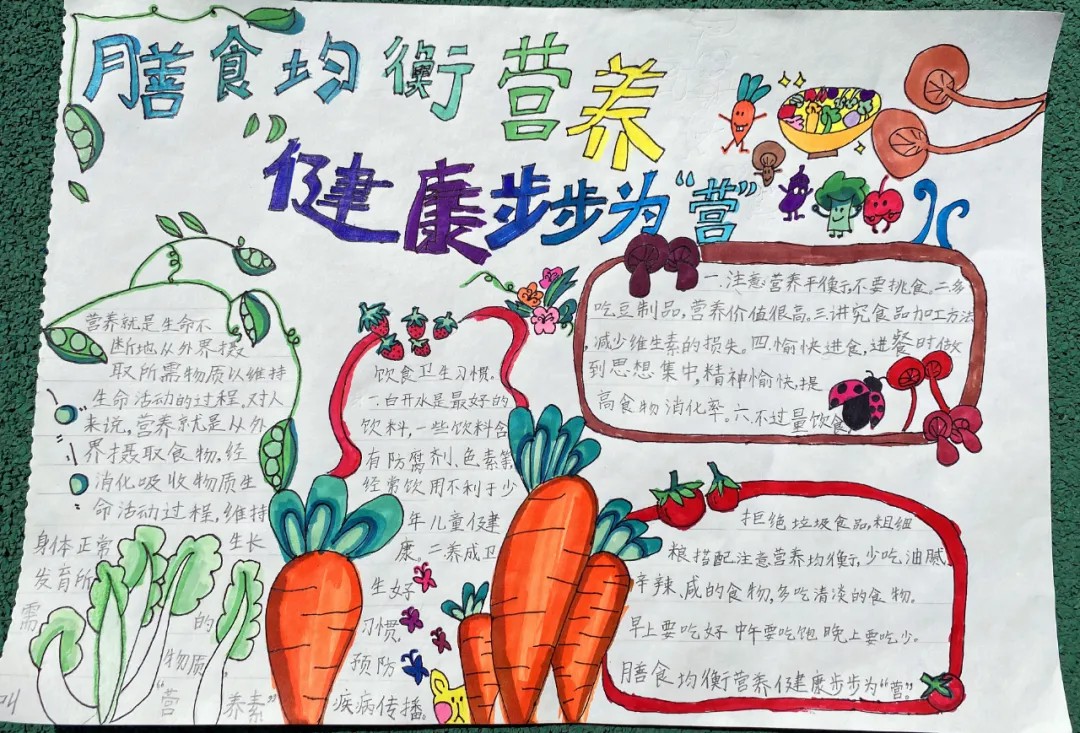 膳食均衡营养
健康步步为“营”
营养就是生命不
断地从外界摄
取所需物质以维持
生命活动的过程。对人
来说,营养就是从外
界摄取食物,经
消化吸收物质生
命活动过程,维持
身体正常 生长
发育所
需 的
物质,
“营 养素”
饮食卫生习惯。
一.白开水是最好的
饮料,一些饮料含
有防腐剂、色素等,
经常饮用不利于少
年儿童健
康。二养成卫
生好
习惯,
预防
疾病传播。
一.注意营养平衡,不要挑食。二多
吃豆制品,营养价值很高。三讲究食品加工方法
,减少维生素的损失。四.愉快进食,进餐时做
到思想集中,精神愉快,提
高食物消化率。六.不过量饮食,
拒绝垃圾食品,粗细
粮搭配注意营养均衡,少吃油腻
辛辣、咸的食物,多吃清淡的食物。
早上要吃好 中午要吃饱 晚上要吃少。
膳食均衡营养 健康步步为“营”。